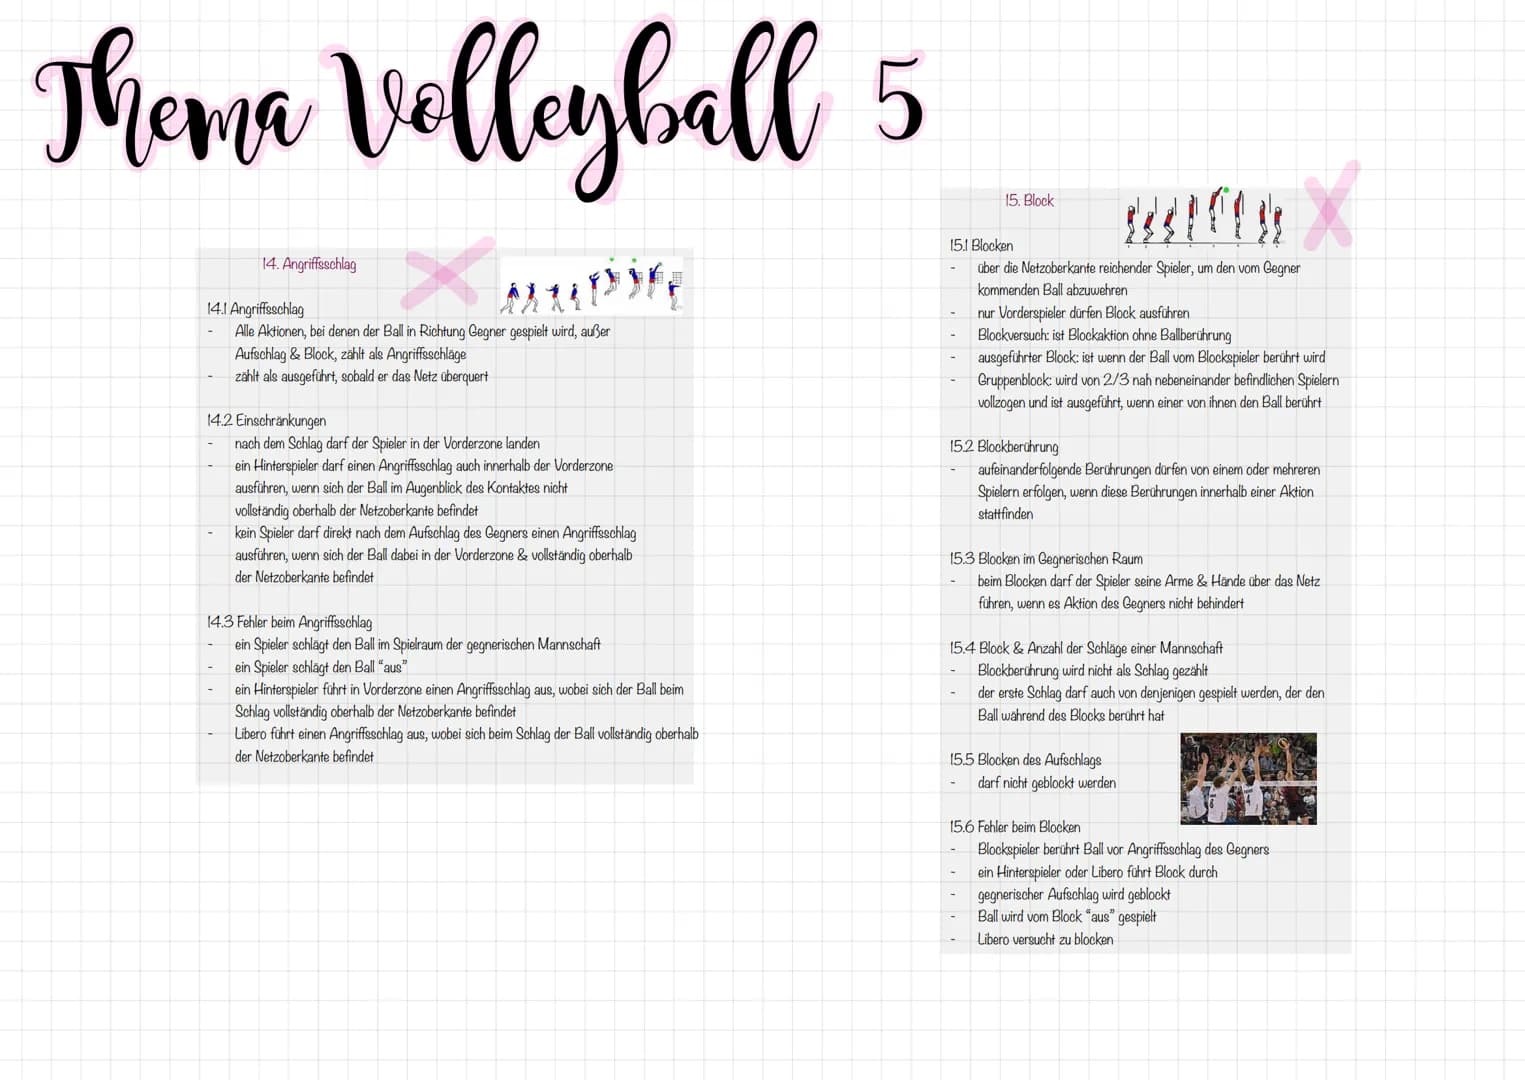 Thema Volleyball 5
14. Angriffsschlag
14.1 Angriffsschlag
- Alle Aktionen, bei denen der Ball in Richtung Gegner gespielt wird, außer
Aufschlag & Block, zählt als Angriffsschläge
- zählt als ausgeführt, sobald er das Netz überquert
14.2 Einschränkungen
- nach dem Schlag darf der Spieler in der Vorderzone landen
- ein Hinterspieler darf einen Angriffsschlag auch innerhalb der Vorderzone
ausführen, wenn sich der Ball im Augenblick des Kontaktes nicht
vollständig oberhalb der Netzoberkante befindet
- kein Spieler darf direkt nach dem Aufschlag des Gegners einen Angriffsschlag
ausführen, wenn sich der Ball dabei in der Vorderzone & vollständig oberhalb
der Netzoberkante befindet
14.3 Fehler beim Angriffsschlag
- ein Spieler schlägt den Ball im Spielraum der gegnerischen Mannschaft
- ein Spieler schlägt den Ball "aus"
- ein Hinterspieler führt in Vorderzone einen Angriffsschlag aus, wobei sich der Ball beim
Schlag vollständig oberhalb der Netzoberkante befindet
- Libero führt einen Angriffsschlag aus, wobei sich beim Schlag der Ball vollständig oberhalb
der Netzoberkante befindet
15. Block
15.1 Blocken
- über die Netzoberkante reichender Spieler, um den vom Gegner
kommenden Ball abzuwehren
- nur Vorderspieler dürfen Block ausführen
- Blockversuch: ist Blockaktion ohne Ballberührung
- ausgeführter Block: ist wenn der Ball vom Blockspieler berührt wird
- Gruppenblock: wird von 2/3 nah nebeneinander befindlichen Spielern
vollzogen und ist ausgeführt, wenn einer von ihnen den Ball berührt
15.2 Blockberührung
- aufeinanderfolgende Berührungen dürfen von einem oder mehreren
Spielern erfolgen, wenn diese Berührungen innerhalb einer Aktion
stattfinden
15.3 Blocken im Gegnerischen Raum
- beim Blocken darf der Spieler seine Arme & Hände über das Netz
führen, wenn es Aktion des Gegners nicht behindert
15.4 Block & Anzahl der Schläge einer Mannschaft
- Blockberührung wird nicht als Schlag gezählt
- der erste Schlag darf auch von denjenigen gespielt werden, der den
Ball während des Blocks berührt hat
15.5 Blocken des Aufschlags
- darf nicht geblockt werden
15.6 Fehler beim Blocken
- Blockspieler berührt Ball vor Angriffsschlag des Gegners
- ein Hinterspieler oder Libero führt Block durch
- gegnerischer Aufschlag wird geblockt
- Ball wird vom Block "aus" gespielt
- Libero versucht zu blocken